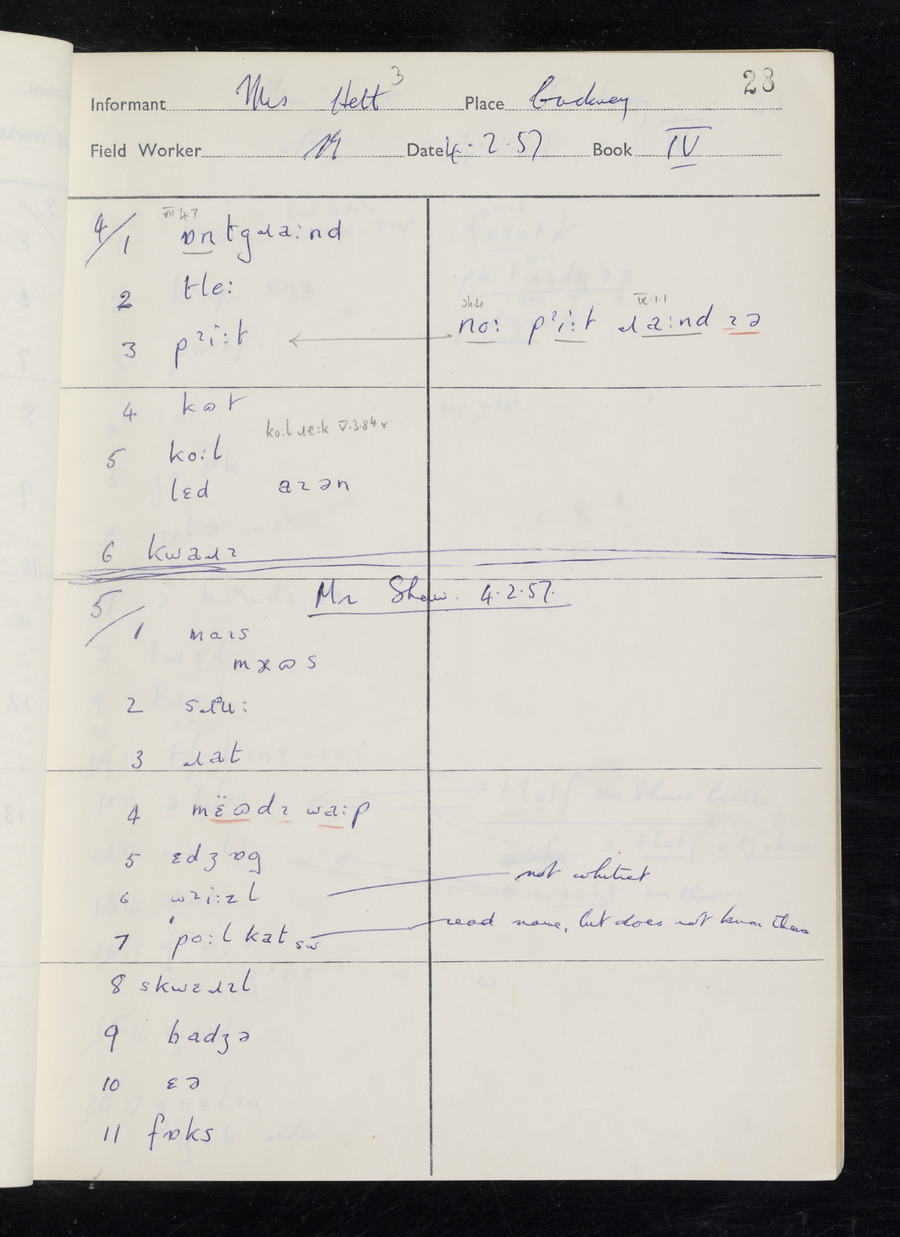 28
Informant Mrs Hett 3 Place Cuckney
Field Worker Date 4.2.57 Book IV
4/1 VII 4.7 ɒntgɹaːnd
2 tleː
3 pᵊiːt noː pᵊiːt ɹaːnd ɪə IX.1.1
4 kɷt
5 koːl koːl ɹeːk V.3.84
lɛd aɪən
6 kwaɹɪ
Mr Shaw 4.2.57.
5/1 maɪs
mɷs
2
3 ɹat
4 mɛ̈ɷdɪ waːp
5 ɛdʒɒg
6 wɪiːzl not whitret
7 poːlkat sw read name, but does not know them
8 skwɛɹɪl
9 badʒə
10 ɛə
11 fɒks